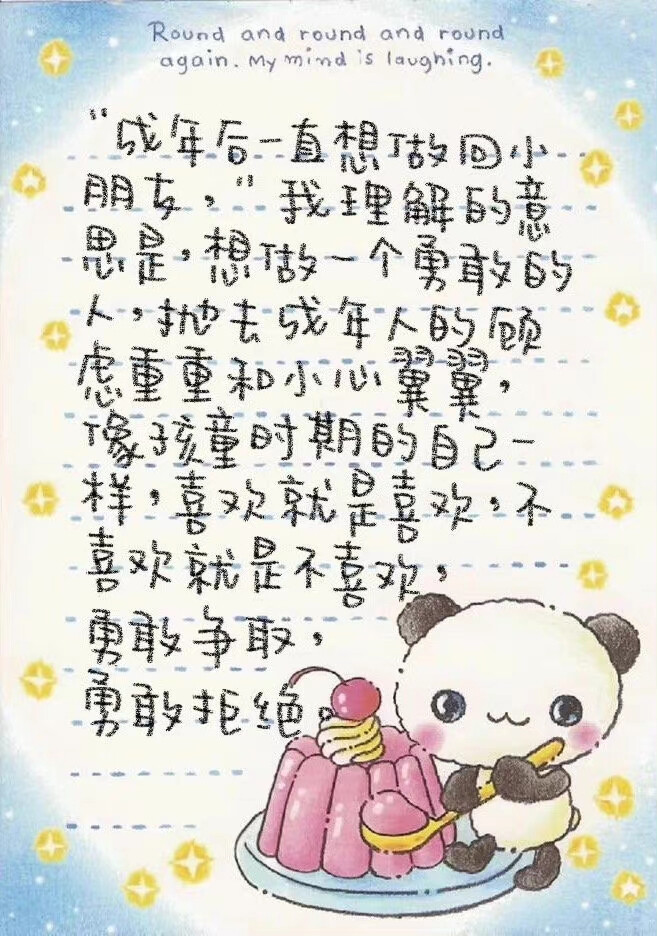 Round and round and round
again. My mind is laughing.
“成年后一直想做回小
朋友，”我理解的意
思是，想做一个勇敢的
人，抛去成年人的顾
虑重重和小心翼翼，
像孩童时期的自己一
样，喜欢就是喜欢，不
喜欢就是不喜欢，
勇敢争取，
勇敢拒绝。